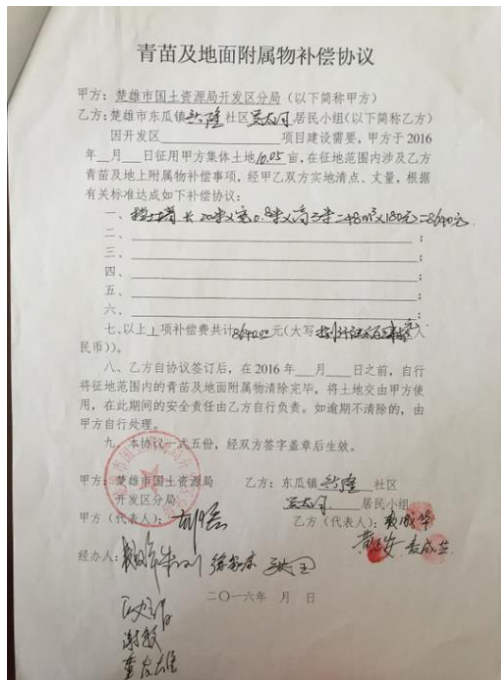 青苗及地面附属物补偿协议
甲方：楚雄市国土资源局开发区分局（以下简称甲方）
乙方：楚雄市东瓜镇 社区 居民小组（以下简称乙方）
因开发区 项目建设需要，甲方于 2016
年 月 日征用甲方集体土地10.05亩，在征地范围内涉及乙方
青苗及地上附属物补偿事项，经甲乙双方实地清点、丈量，根据
有关标准达成如下补偿协议：
一、挡土墙长20米×宽0.8米×高3米=48m³×180元=8640元；
二、 ；
三、 ；
四、 ；
五、 ；
六、 ；
七、以上1项补偿费共计8640.00元（大写 人
民币））。
八、乙方自协议签订后，在 2016 年 月 日之前，自行
将征地范围内的青苗及地面附属物清除完毕，将土地交由甲方使
用，在此期间的安全责任由乙方自行负责。如逾期不清除的，由
甲方自行处理。
九、本协议一式五份，经双方签字盖章后生效。
甲方：楚雄市国土资源局 乙方：东瓜镇 社区
开发区分局 居民小组
甲方（代表人）： 乙方（代表人）：
经办人：
二〇一六年 月 日